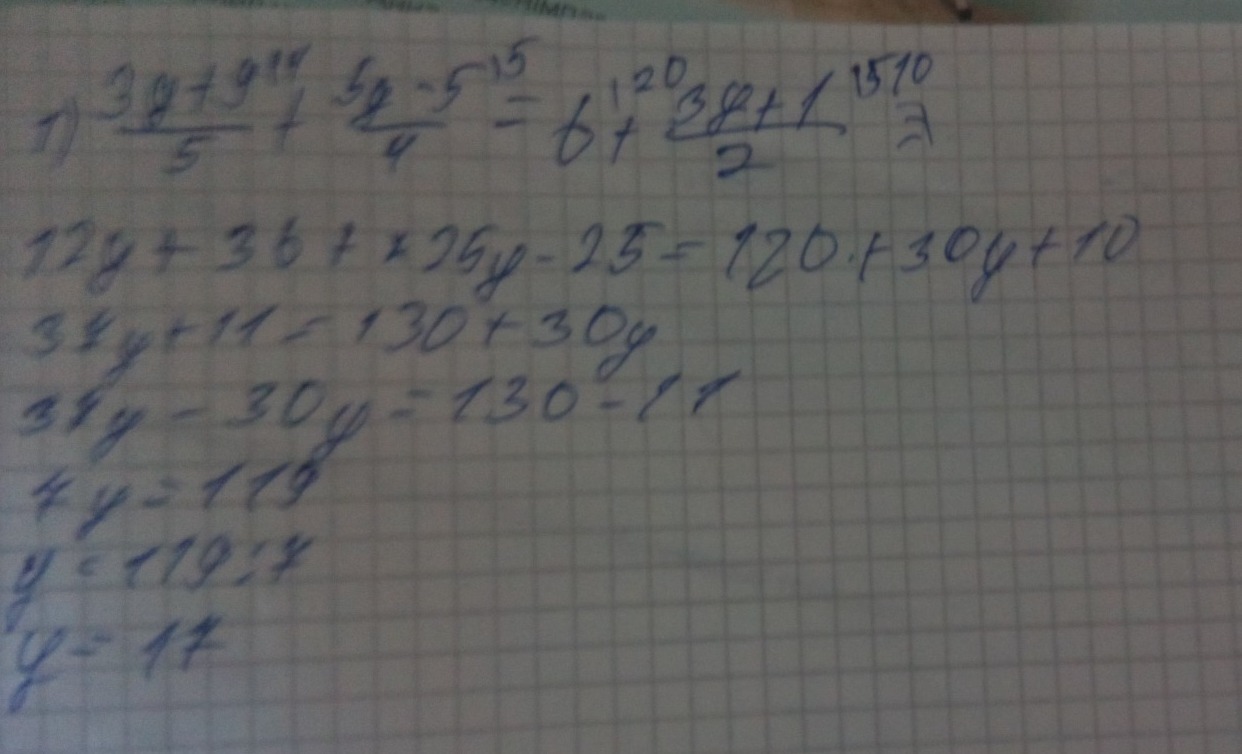 1) (3y+9)/5 |4 + (5y-5)/4 |5 = 6 |20 + (3y+1)/2 |10 =>
12y + 36 + 25y - 25 = 120 + 30y + 10
37y + 11 = 130 + 30y
37y - 30y = 130 - 11
7y = 119
y = 119 : 7
y = 17